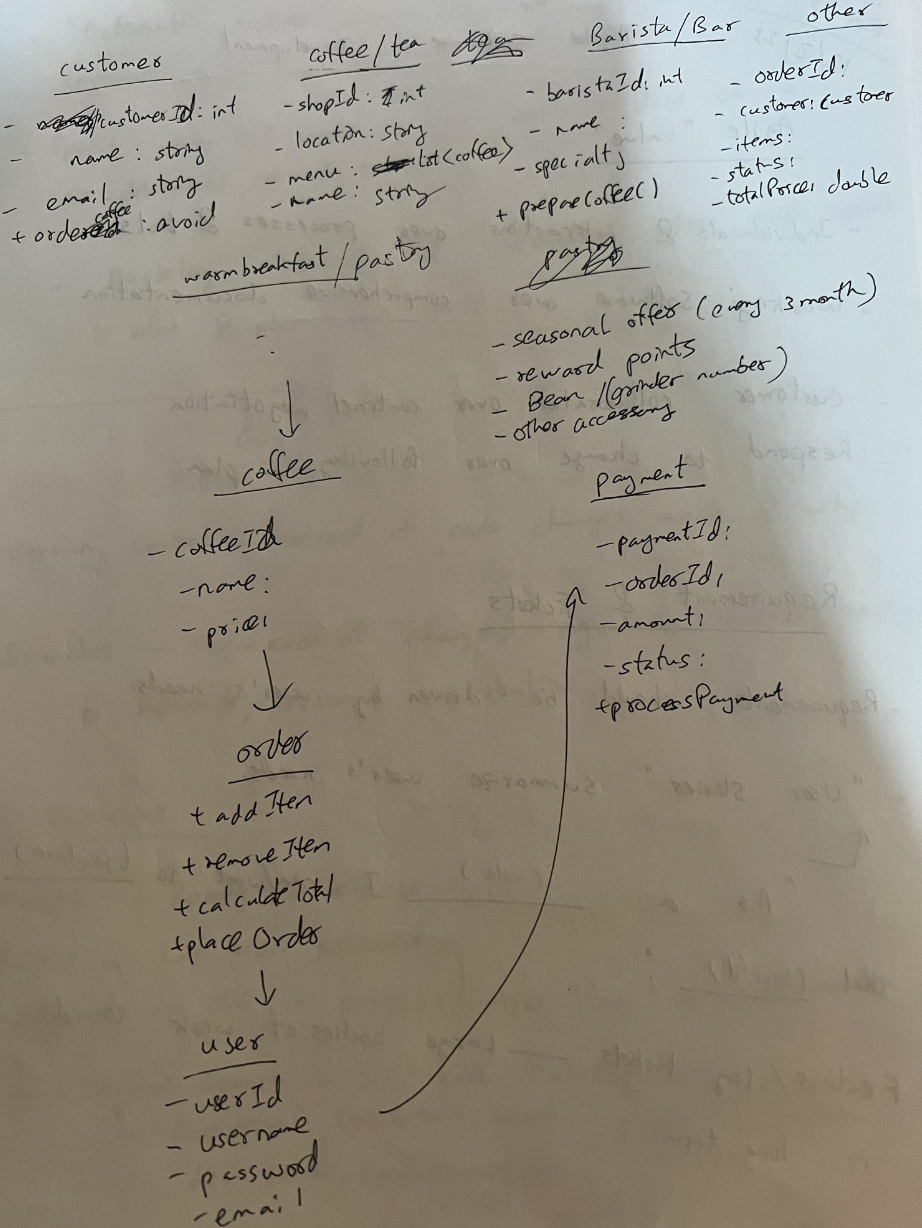 customer
- customerId: int
- name: string
- email: string
+ ordercoffee: avoid
coffee/tea
- shopId: int
- location: string
- menu: list<coffee>
- name: string
Barista/Bar
- baristaId: int
- name:
- specialty
+ prepareCoffee()
other
- orderId:
- customer: Customer
- items:
- status:
- totalPrice: double
warmbreakfast/pastry
-
pastry
- seasonal offer (every 3 month)
- reward points
- Bean /(grinder number)
- other accessory
coffee
- coffeeId
- name:
- price:
order
+ addItem
+ removeItem
+ calculateTotal
+ placeOrder
user
- userId
- username
- password
- email
payment
- paymentId:
- orderId:
- amount:
- status:
+ processPayment